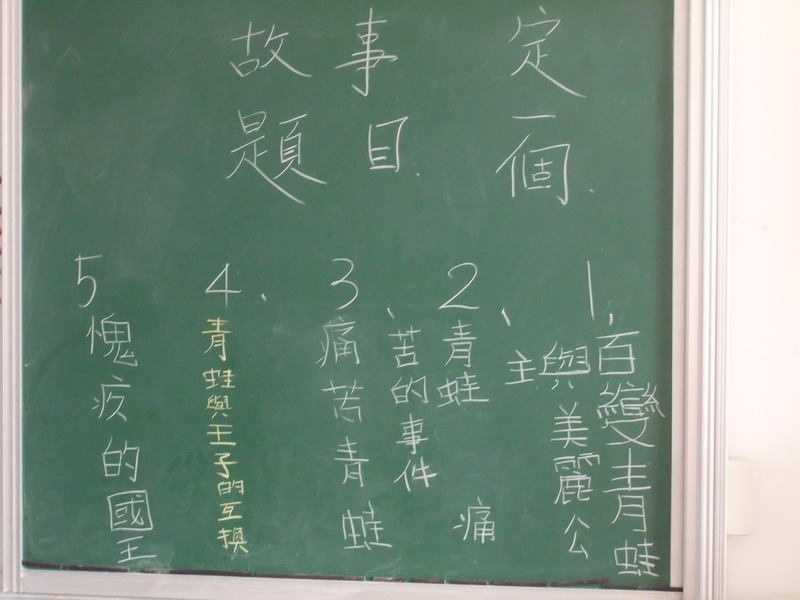 定
一個.
故事
題目.
1.
百變青蛙
與美麗公
主
2、
青蛙 痛
苦的事件
3、
痛苦青蛙
4、
青蛙與王子的互換
5
愧疚的國王